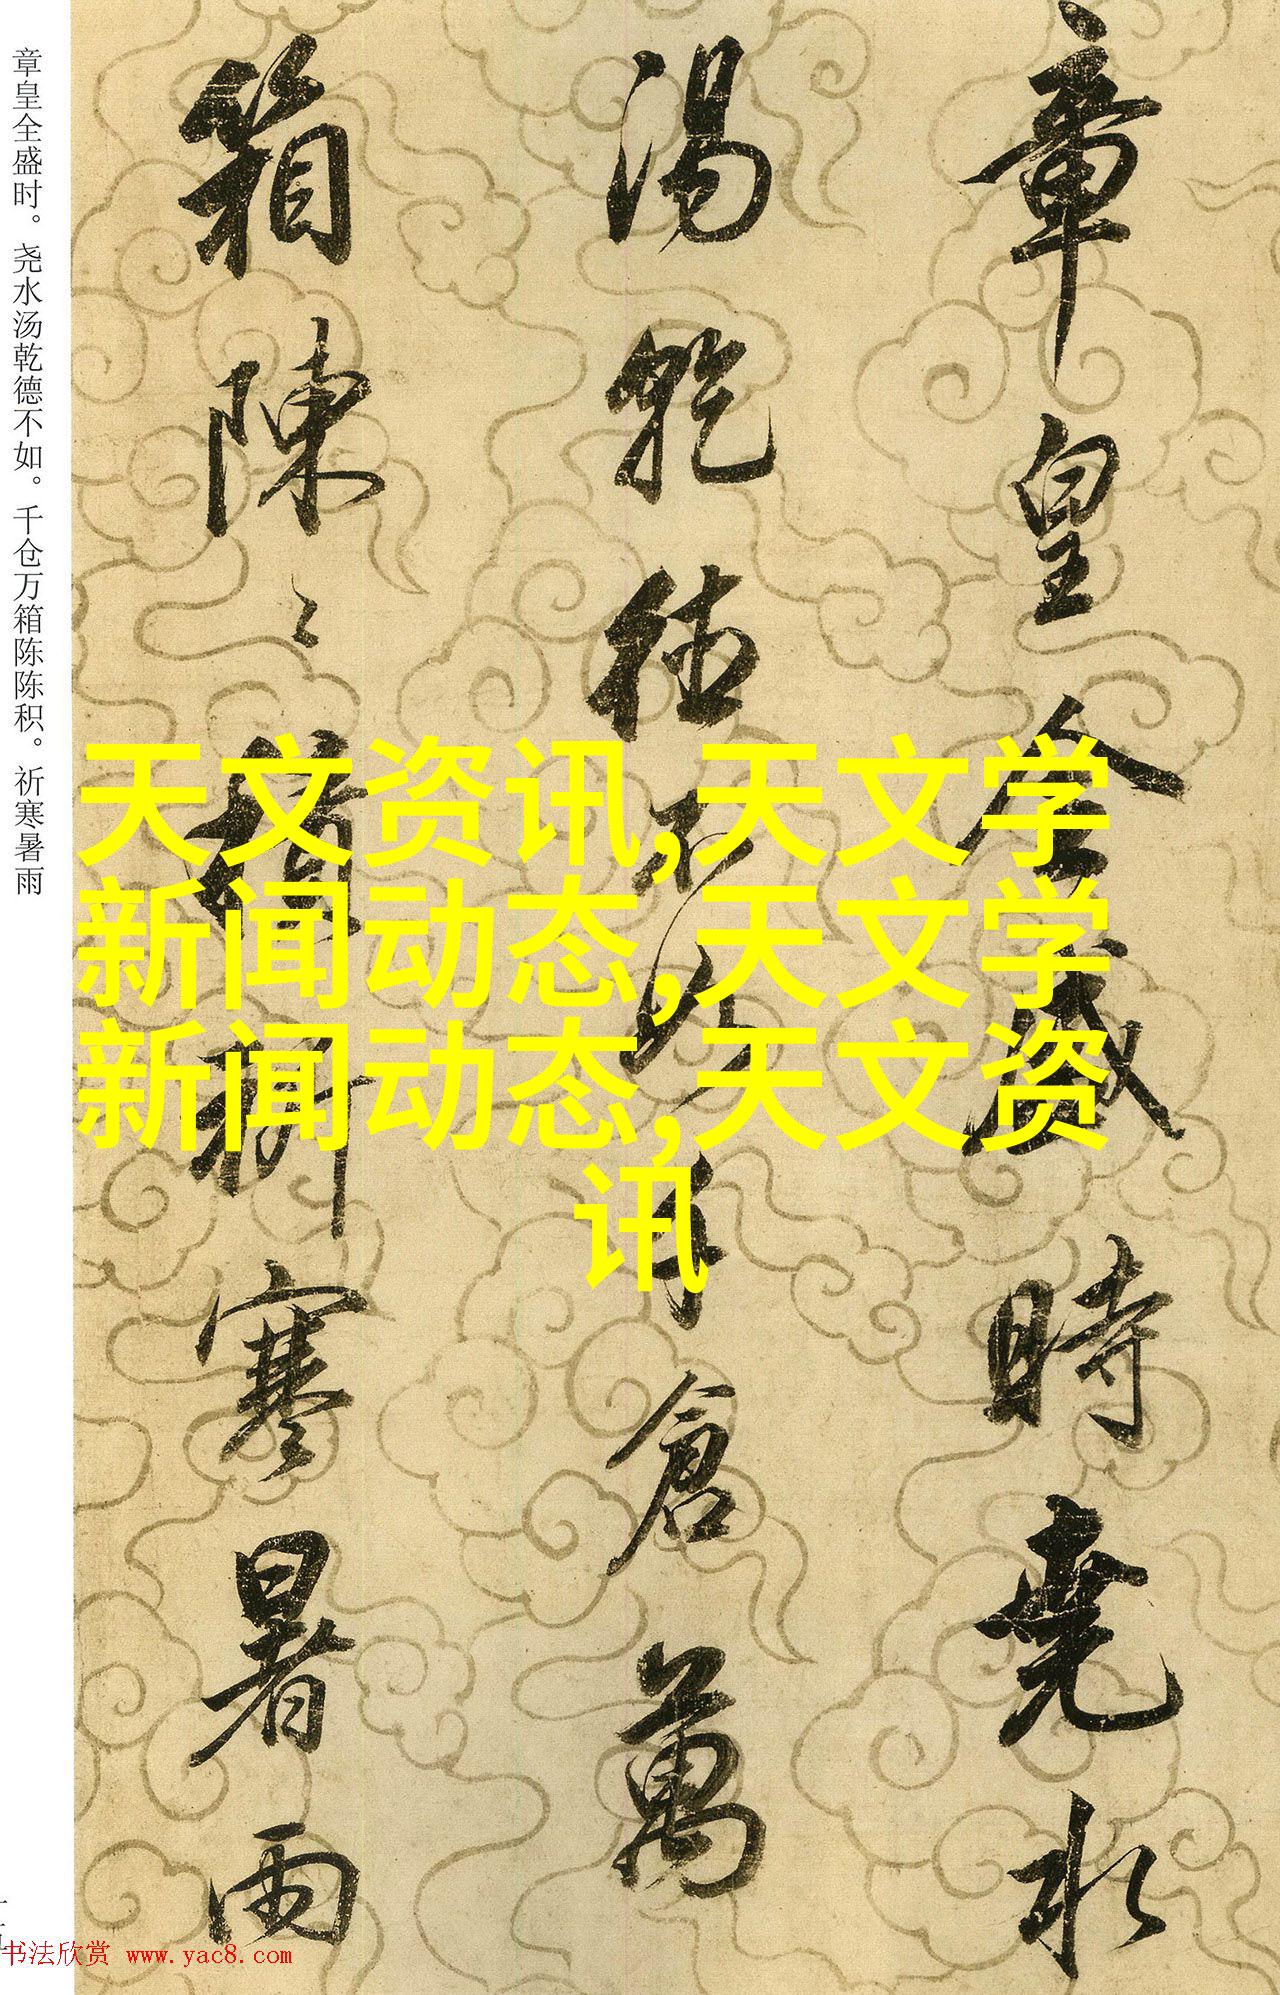 章皇全盛時堯水
湯乾德不如千倉萬
箱陳〻積祈寒暑雨
章皇全盛时。尧水汤乾德不如。千仓万箱陈陈积。祈寒暑雨
天文资讯,天文学
新闻动态,天文学
新闻动态,天文资
讯
书法欣赏 www.yac8.com